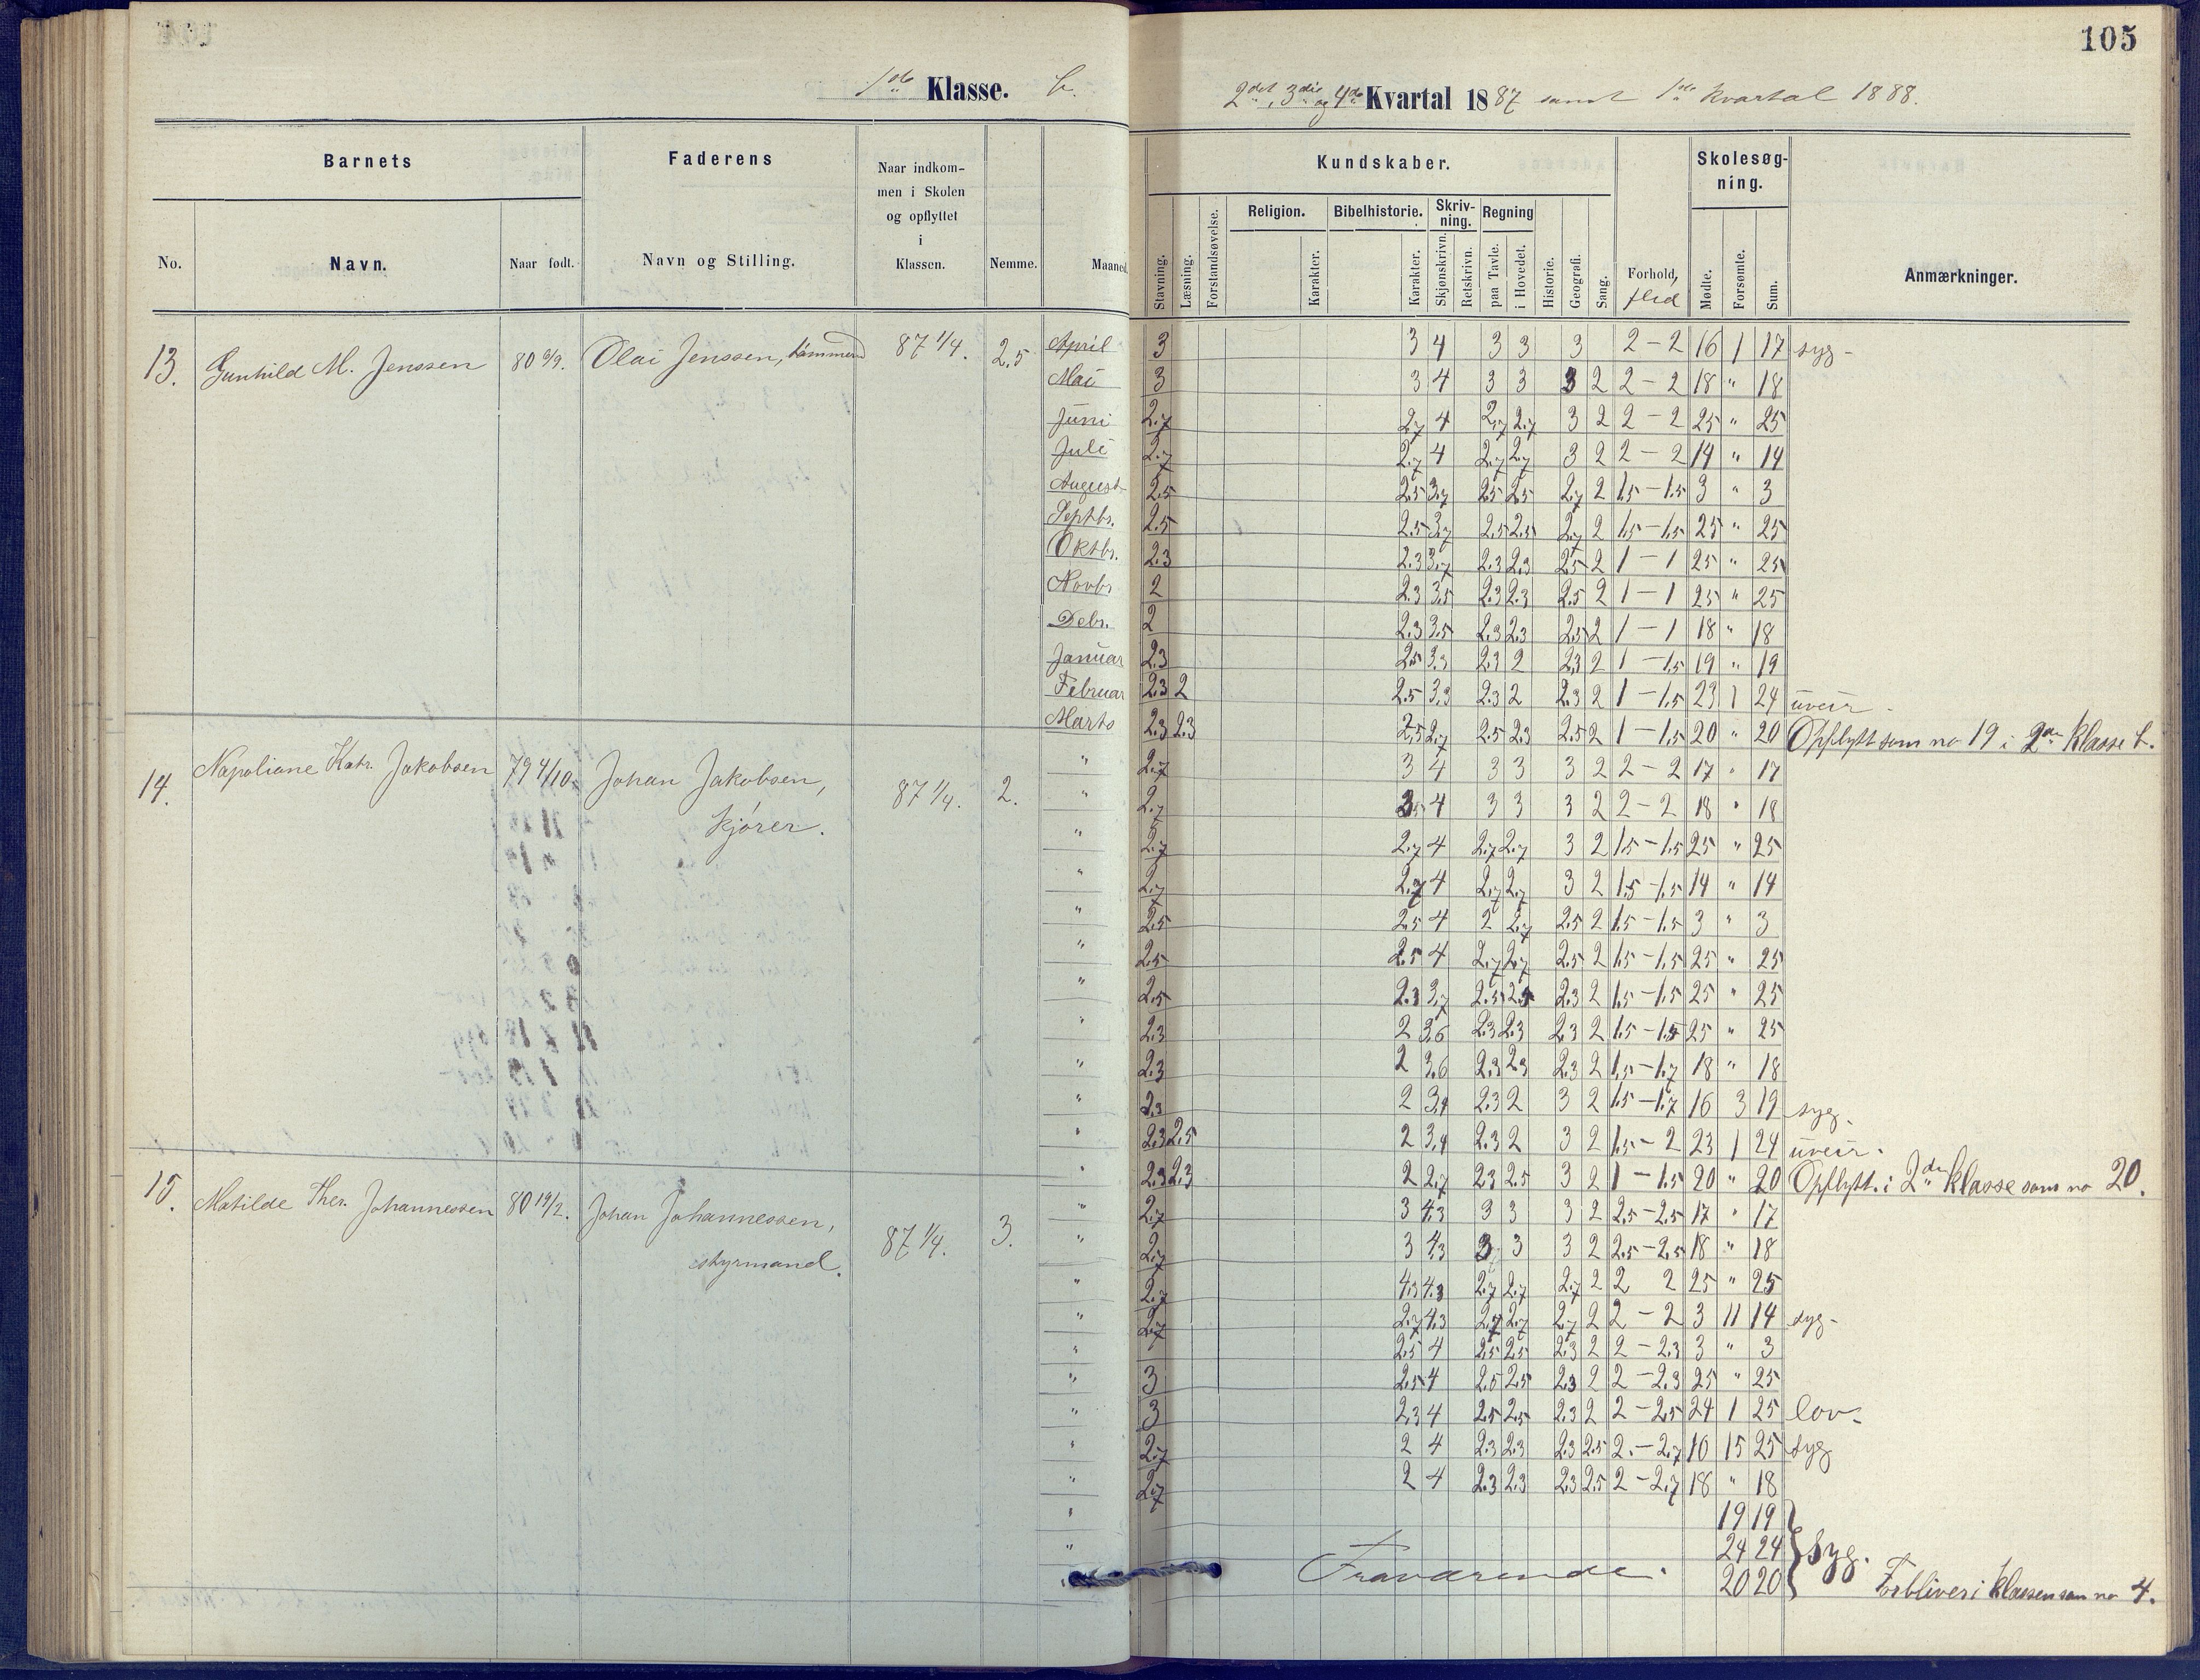 105
1ste Klasse. b.
2det, 3die og 4de Kvartal 1887 samt 1ste kvartal 1888.
Barnets Faderens Naar indkommen i Skolen og opflyttet i Klassen. Nemme. Maaned. Kundskaber. Forhold, flid Skolesøgning. Anmærkninger.
No. Navn. Naar født. Navn og Stilling. Stavning. Læsning. Forstandsøvelse. Religion. Karakter. Bibelhistorie. Karakter. Skrivning. Skjønskrivn. Retskrivn. Regning paa Tavle. i Hovedet. Historie. Geografi. Sang. Mødte. Forsømte. Sum.
13. Gunhild M. Jenssen 80 9/9. Olai Jenssen, tømmerm 87 1/4. 2,5 April 3 3 4 3 3 3 2-2 16 1 17 syg-
Mai 3 3 4 3 3 3 2 2-2 18 " 18
Juni 2.7 2,7 4 2,7 2,7 3 2 2-2 25 " 25
Juli 2.7 2,7 4 2,7 2,7 3 2 2-2 14 " 14
August 2,5 2,5 3,7 2,5 2,5 2,7 2 1,5-1,5 3 " 3
Septbr. 2.5 2.5 3,7 2.5 2.5 2,7 2 1,5-1,5 25 " 25
Oktbr. 2.3 2.3 3,7 2.3 2.3 2,5 2 1-1 25 " 25
Novbr 2 2.3 3,5 2.3 2.3 2.5 2 1-1 25 " 25
Debr. 2 2.3 3.5 2.3 2.3 2,5 2 1-1 18 " 18
Januar 2.3 2.5 3.3 2.3 2 2,3 2 1-1,5 19 " 19
Februar 2.3 2 2.5 3,3 2.3 2 2.3 2 1-1,5 23 1 24 uveir-
Marts 2.3 2.3 2,5 2,7 2.5 2.3 2.5 2 1-1,5 20 " 20 Opflytt som no 19 i 2den Klasse b.
14. Napoliane Katr. Jakobsen 79 4/10. Johan Jakobsen, 87 1/4. 2. " 2.7 3 4 3 3 3 2 2-2 17 " 17
kjører. " 2.7 3 4 3 3 3 2 2-2 18 " 18
" 2.7 2.7 4 2,7 2,7 3 2 1,5-1,5 25 " 25
" 2,7 2,7 4 2,7 2,7 3 2 1,5-1,5 14 " 14
" 2,5 2,5 4 2 2,7 2,5 2 1,5-1,5 3 " 3
" 2,5 2.5 4 2,7 2,7 2.5 2 1,5-1,5 25 " 25
" 2,5 2.3 3,7 2.5 2.5 2.3 2 1,5-1,5 25 " 25
" 2.3 2 3,6 2.3 2.3 2.3 2 1,5-1,5 25 " 25
" 2.3 2 3,6 2.3 2.3 2.3 2 1,5-1,7 18 " 18
" 2,3 2 3,4 2.3 2 3 2 1,5-1,7 16 3 19 syg.
" 2.3 2,5 2 3,4 2.3 2 3 2 1,5-2 23 1 24 uveir.
" 2.3 2.3 2 2,7 2.3 2.5 3 2 1-1,5 20 " 20 Opflytt. i 2den Klasse som no 20.
15. Matilde Ther. Johannessen 80 19/2. Johan Johannessen, 87 1/4. 3. " 2.7 3 4,3 3 3 3 2 2,5-2,5 17 " 17
styrmand. " 2,7 3 4,3 3 3 3 2 2,5-2,5 18 " 18
" 2.7 4,3 4.3 2,7 2,7 2,7 2 2 2 25 " 25
" 2.7 2,7 4,3 2,7 2,7 2,7 2 2-2 3 11 14 syg-
" 2,5 4 2,5 2,5 2.3 2 2-2,3 3 " 3
" 3 2,5 4 2,5 2,5 2.3 2 2-2.3 25 " 25
" 3 2,3 4 2,5 2,5 2.3 2 2-2,5 24 1 25 lov-
" 2.7 2 4 2.3 2.3 2.3 2.5 2.-2,7 10 15 25 syg
" 2,7 2 4 2.3 2.3 2.3 2.5 2-2,7 18 " 18
" 19 19
" 24 24 syg.
Fraværende. 20 20 Forbliver i klassen som no 4.